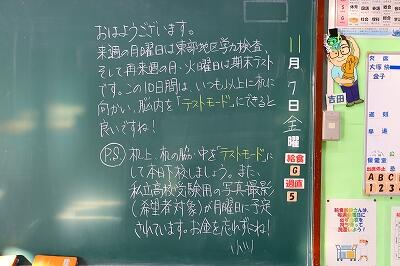 おはようございます。
来週の月曜日は東部地区学力検査、
そして再来週の月・火曜日は期末テスト
です。この10日間は、いつも以上に机に
向かい、脳内を「テストモード」にできると
良いですね！
P.S 机上、机の脇・中を「テストモード」に
して本日下校しましょう。また、
私立高校受験用の写真撮影
(希望者対象)が月曜日に予定
されています。お金を忘れずね！
11月7日金曜
給食
G
週直
5
吉田
欠席
大塚
金子
遅刻
早退
保健室
出席停止
A B C
1 2 3